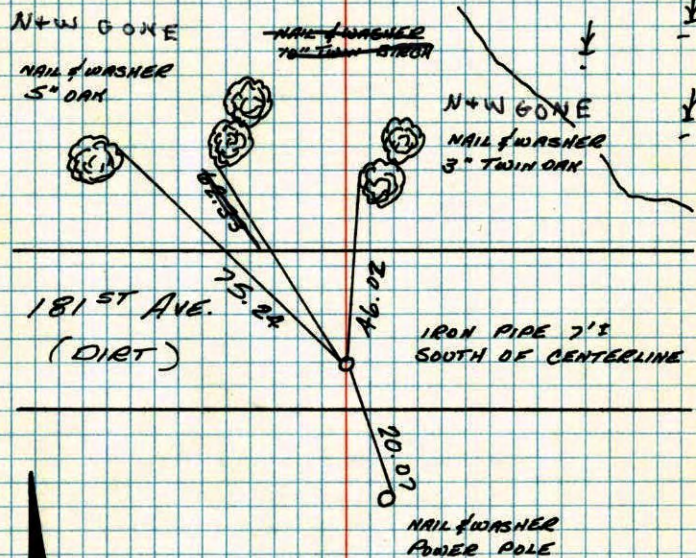 N+W GONE
NAIL & WASHER
5" OAK
NAIL & WASHER
10" TWIN BIRCH
N+W GONE
NAIL & WASHER
3" TWIN OAK
62.53
75.24
46.02
181ST AVE.
(DIRT)
IRON PIPE 7'±
SOUTH OF CENTERLINE
20.07
NAIL & WASHER
POWER POLE